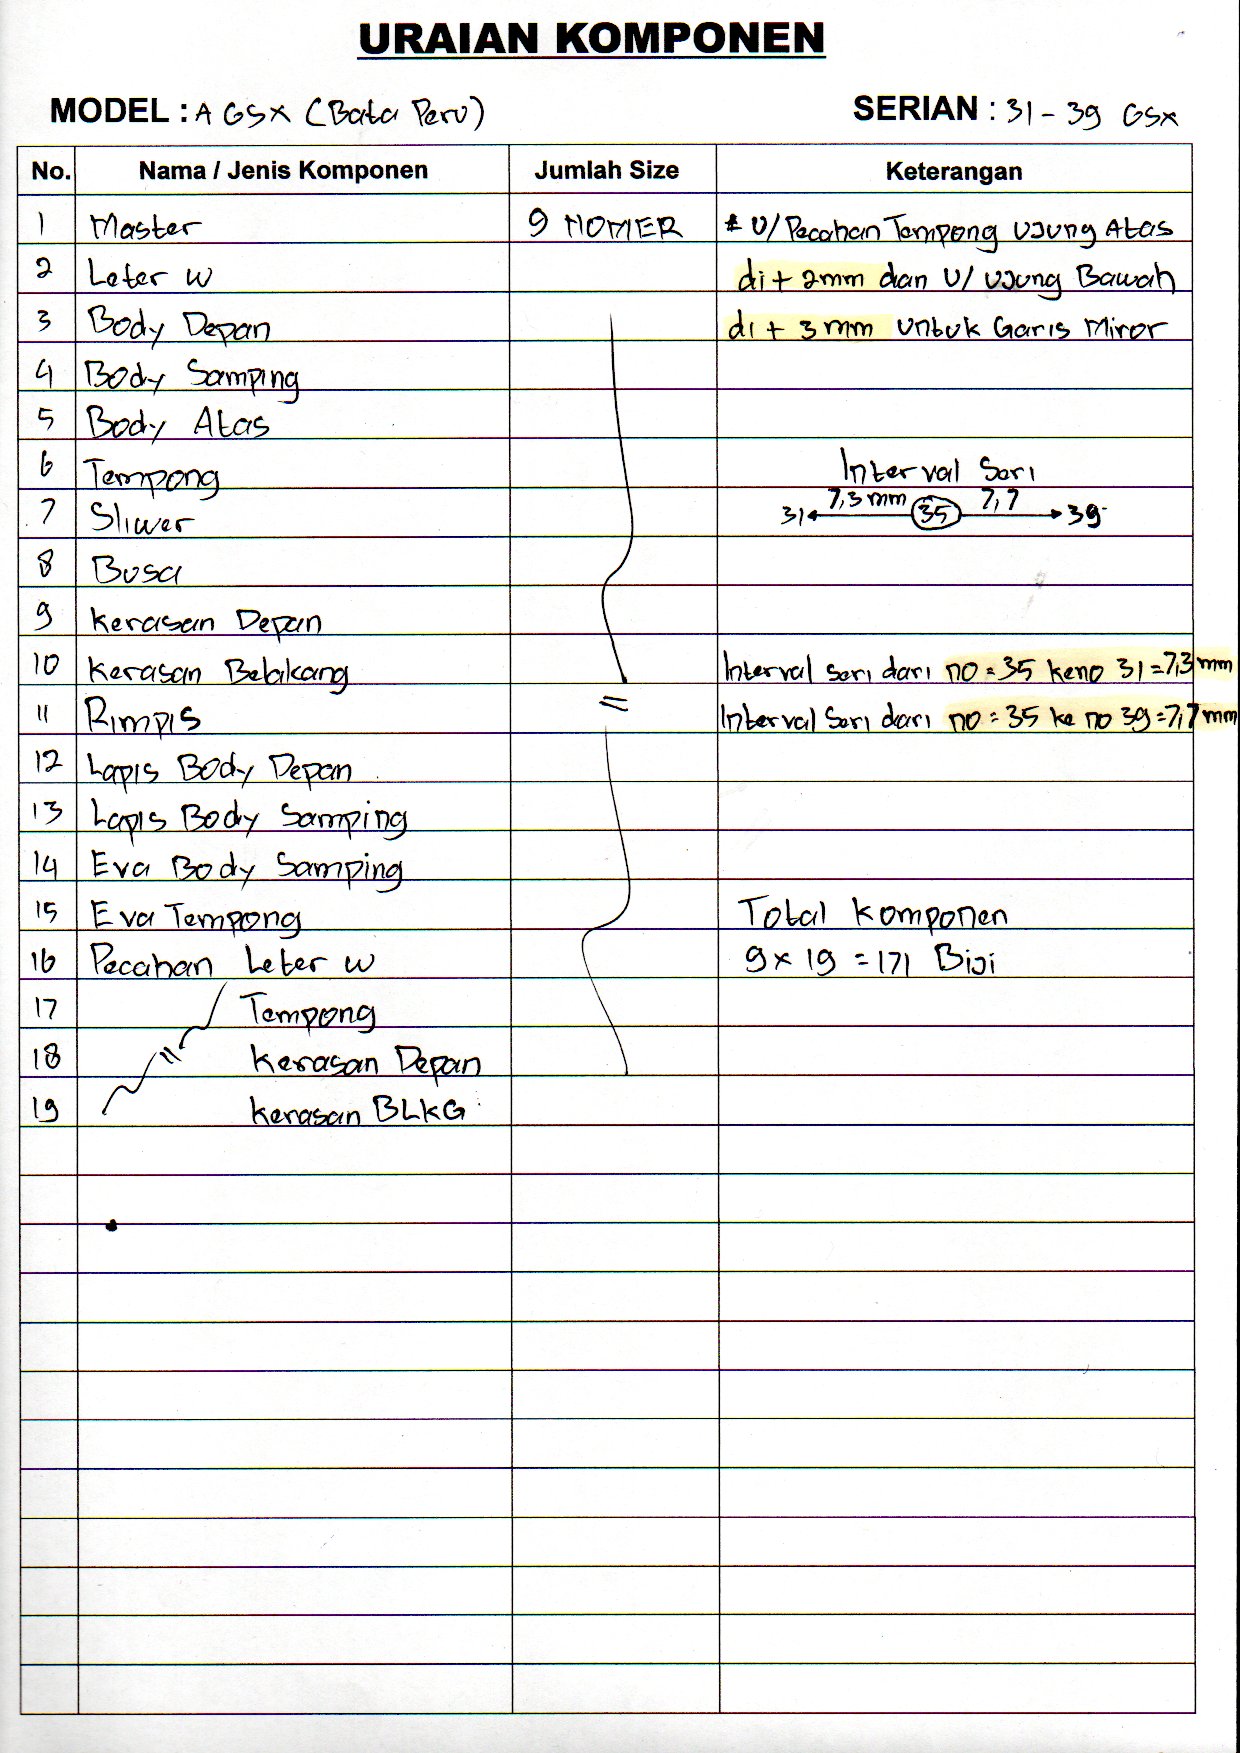 URAIAN KOMPONEN
MODEL : A GSX (Bata Peru) SERIAN : 31 - 39 GSX
No. Nama / Jenis Komponen Jumlah Size Keterangan
1 Master 9 NOMER * U/Pecahan Tempong Ujung Atas
2 Leter W di + 2mm dan U/ Ujung Bawah
3 Body Depan di + 3 mm Untuk Garis Miror
4 Body Samping
5 Body Atas
6 Tempong Interval Seri
7 Sliwer 31 7,3 mm 35 7,7 39
8 Busa
9 Kerasan Depan
10 Kerasan Belakang Interval seri dari no = 35 keno 31 = 7,3 mm
11 Rimpis = Interval Seri dari no = 35 ke no 39 = 7,7 mm
12 Lapis Body Depan
13 Lapis Body Samping
14 Eva Body Samping
15 Eva Tempong Total Komponen
16 Pecahan Leter W 9 x 19 = 171 Biji
17 Tempong
18 = Kerasan Depan
19 Kerasan BLKG